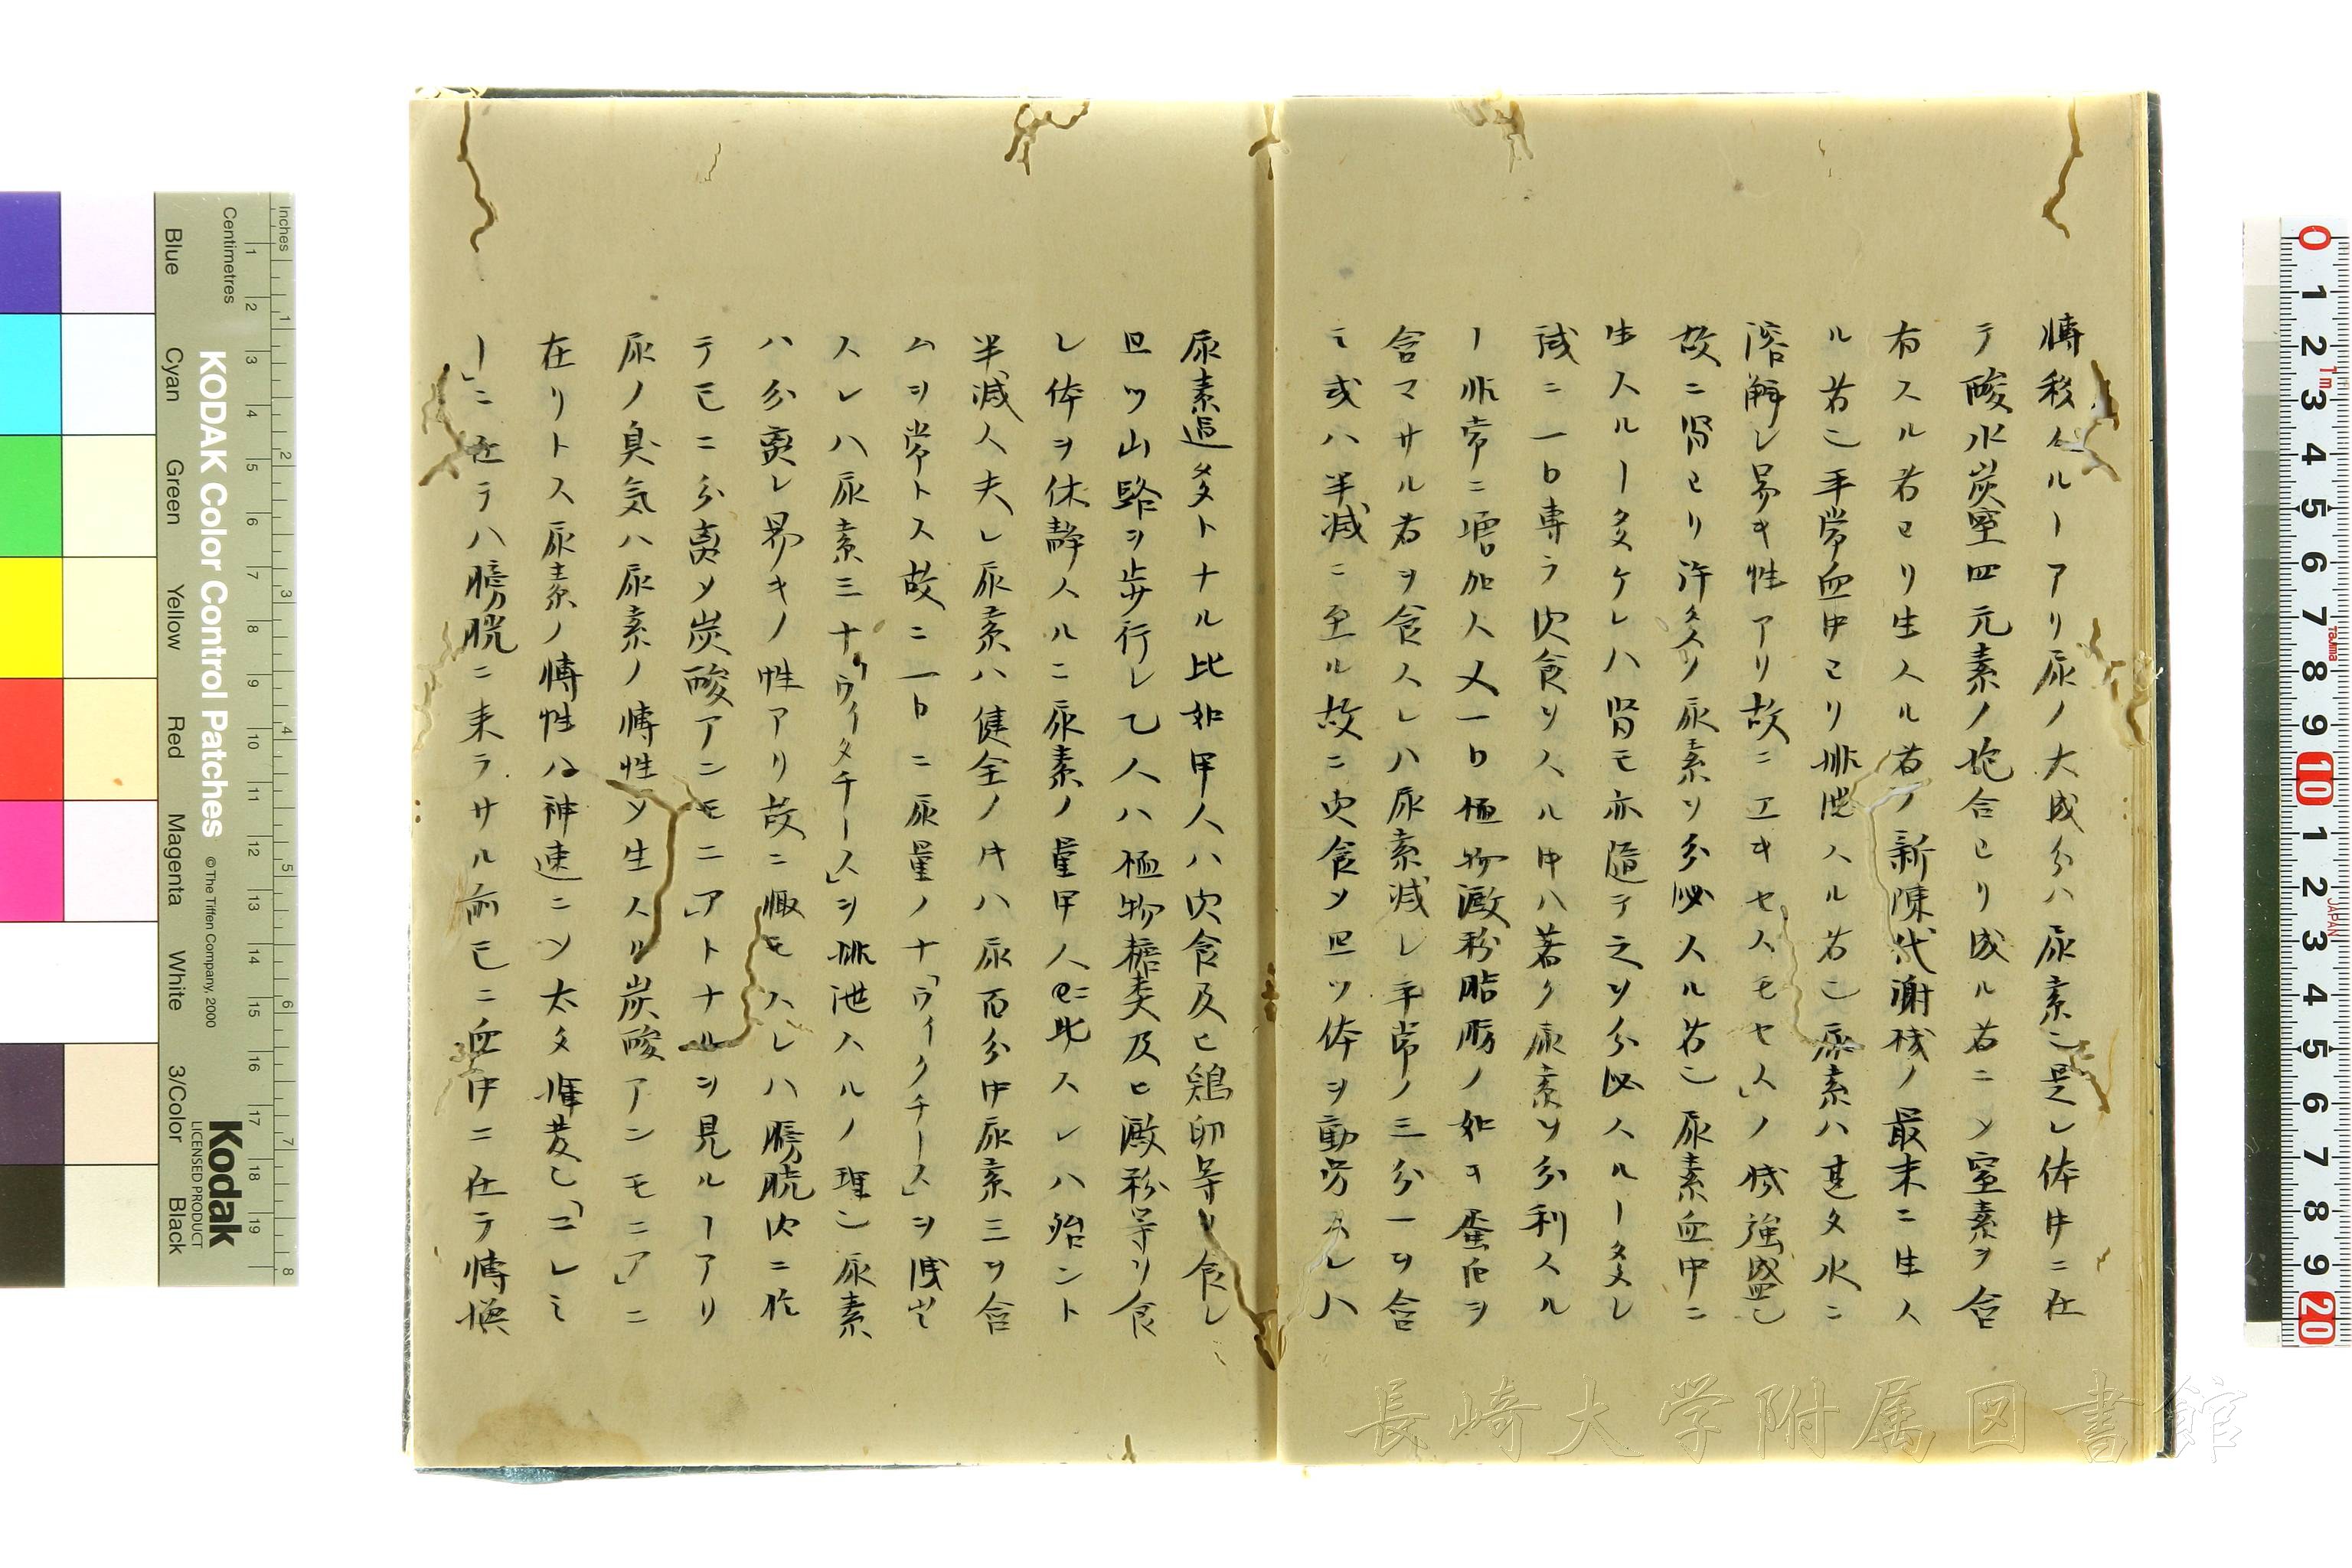 轉移スルヿアリ尿ノ大成分ハ尿素也是レ体中ニ在
テ酸水炭窒四元素ノ抱合ヨリ成ル者ニ〆窒素ヲ含
有スル者ヨリ生スル者ノ新陳代謝機ノ最末ニ生ス
ル者也平常血中ヨリ排泄スル者也尿素ハ甚タ水ニ
溶解シ易キ性アリ故ニエキセスモセス」ノ機強盛也
故ニ腎ヨリ許多ノ尿素ヲ分泌スル者也尿素血中ニ
生スルヿ多ケレハ腎モ亦隨テ之ヲ分泌スルヿ多シ
試ニ一日専ラ肉食ヲスル中ハ著ク尿素ヲ分利スル
ヿ非常ニ増加ス又一日植物澱粉脂肪ノ如キ蛋白ヲ
含マサル者ヲ食スレハ尿素減シ平常ノ三分一ヲ含
ミ或ハ半減ニ至ル故ニ肉食ヲ〆且ツ体ヲ動労スレハ
尿素過多トナル比如甲人ハ肉食及ヒ鶏卵等ヲ食シ
且ツ山路ヲ歩行シ乙人ハ植物糖类及ヒ澱粉等ヲ食
シ体ヲ休静スルニ尿素ノ量甲人ニ比スレハ殆ント
半減ス夫レ尿素ハ健全ノ時ハ尿百分中尿素三ヲ含
ムヲ常トス故ニ一日ニ尿量ノ十「ウイクチース」ヲ洩せ
スレハ尿素三十「ウイクチース」ヲ排泄スルノ理也尿素
ハ分离シ易キノ性アリ故ニ慨モスレハ膀胱内ニ於
テ已ニ分离〆炭酸アンモニア」トナルヲ見ルヿアリ
尿ノ臭気ハ尿素ノ轉性〆生スル炭酸アンモニア」ニ
在リトス尿素ノ轉性ハ神速ニ〆太タ揮発也「コレミ
ー」ニ在テハ膀胱ニ来ラサル前已ニ血中ニ在テ轉換
Inches
Centimetres
KODAK Color Control Patches
© The Tiffen Company, 2000
Kodak
LICENSED PRODUCT
Blue
Cyan
Green
Yellow
Red
Magenta
White
3/Color
Black
長崎大学附属図書館